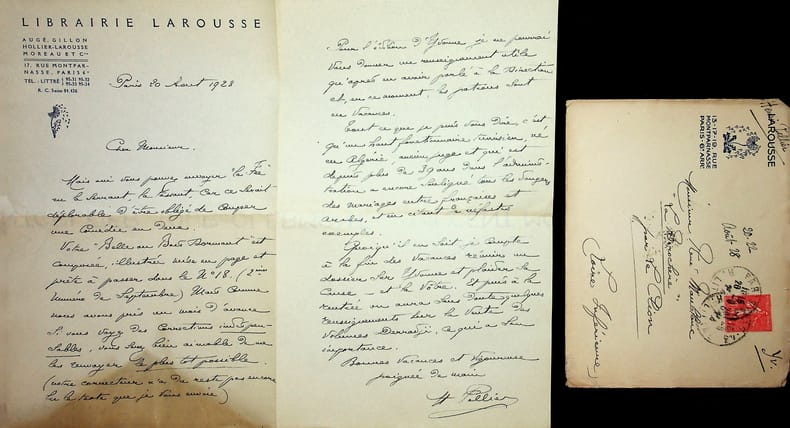 LIBRAIRIE LAROUSSE
AUGÉ, GILLON
HOLLIER-LAROUSSE
MOREAU ET Cie
17, RUE MONTPAR-
NASSE, PARIS 6e
TEL.: LITTRÉ 95-31 95-32
95-33 95-34
R. C. Seine
Paris 20 Aout 1928
Cher Monsieur,
Mais oui vous pouvez envoyer "la Fée"
en la serrant, la tassant, car ce serait
déplorable d'être obligé de couper
une Comédie en deux.
Votre "Belle au Bois Dormant" est
composée, illustrée mise en page et
prête à passer dans le N° 18. (2ème
numéro de Septembre) Mais comme
nous avons près un mois d'avance
si vous voyez des corrections indispen-
sables, vous seriez bien aimable de me
les renvoyer le plus tôt possible.
(notre correcteur n'a du reste pas encore
lu le texte que je vous envoie)
Pour l'édition d'Yvonne je ne pourrai
vous donner un renseignement utile
qu'après en avoir parlé à la Direction
et, en ce moment, les patrons sont
en vacances.
Tout ce que je puis vous dire, c'est
qu'un haut fonctionnaire tunisien, né
en Algérie, ancien juge et qui est
depuis plus de 39 ans dans l'adminis-
tration a encore souligné tous les dangers
des mariages entre françaises et
arabes, et en citant de néfastes
exemples.
Quoiqu'il en soit je compte
à la fin des vacances réunir un
dossier sur Yvonne et plaider sa
cause - et la vôtre. Et puis à la
rentrée on aura sans doute quelques
renseignements sur la vente des
volumes ce qui a son
importance.
Bonnes vacances et vigoureuse
poignée de main
H Pellier
LAROUSSE
13-17-19, RUE
MONTPARNASSE
PARIS-6e ARRt
Monsieur René
"La "
par
Loire Inférieure